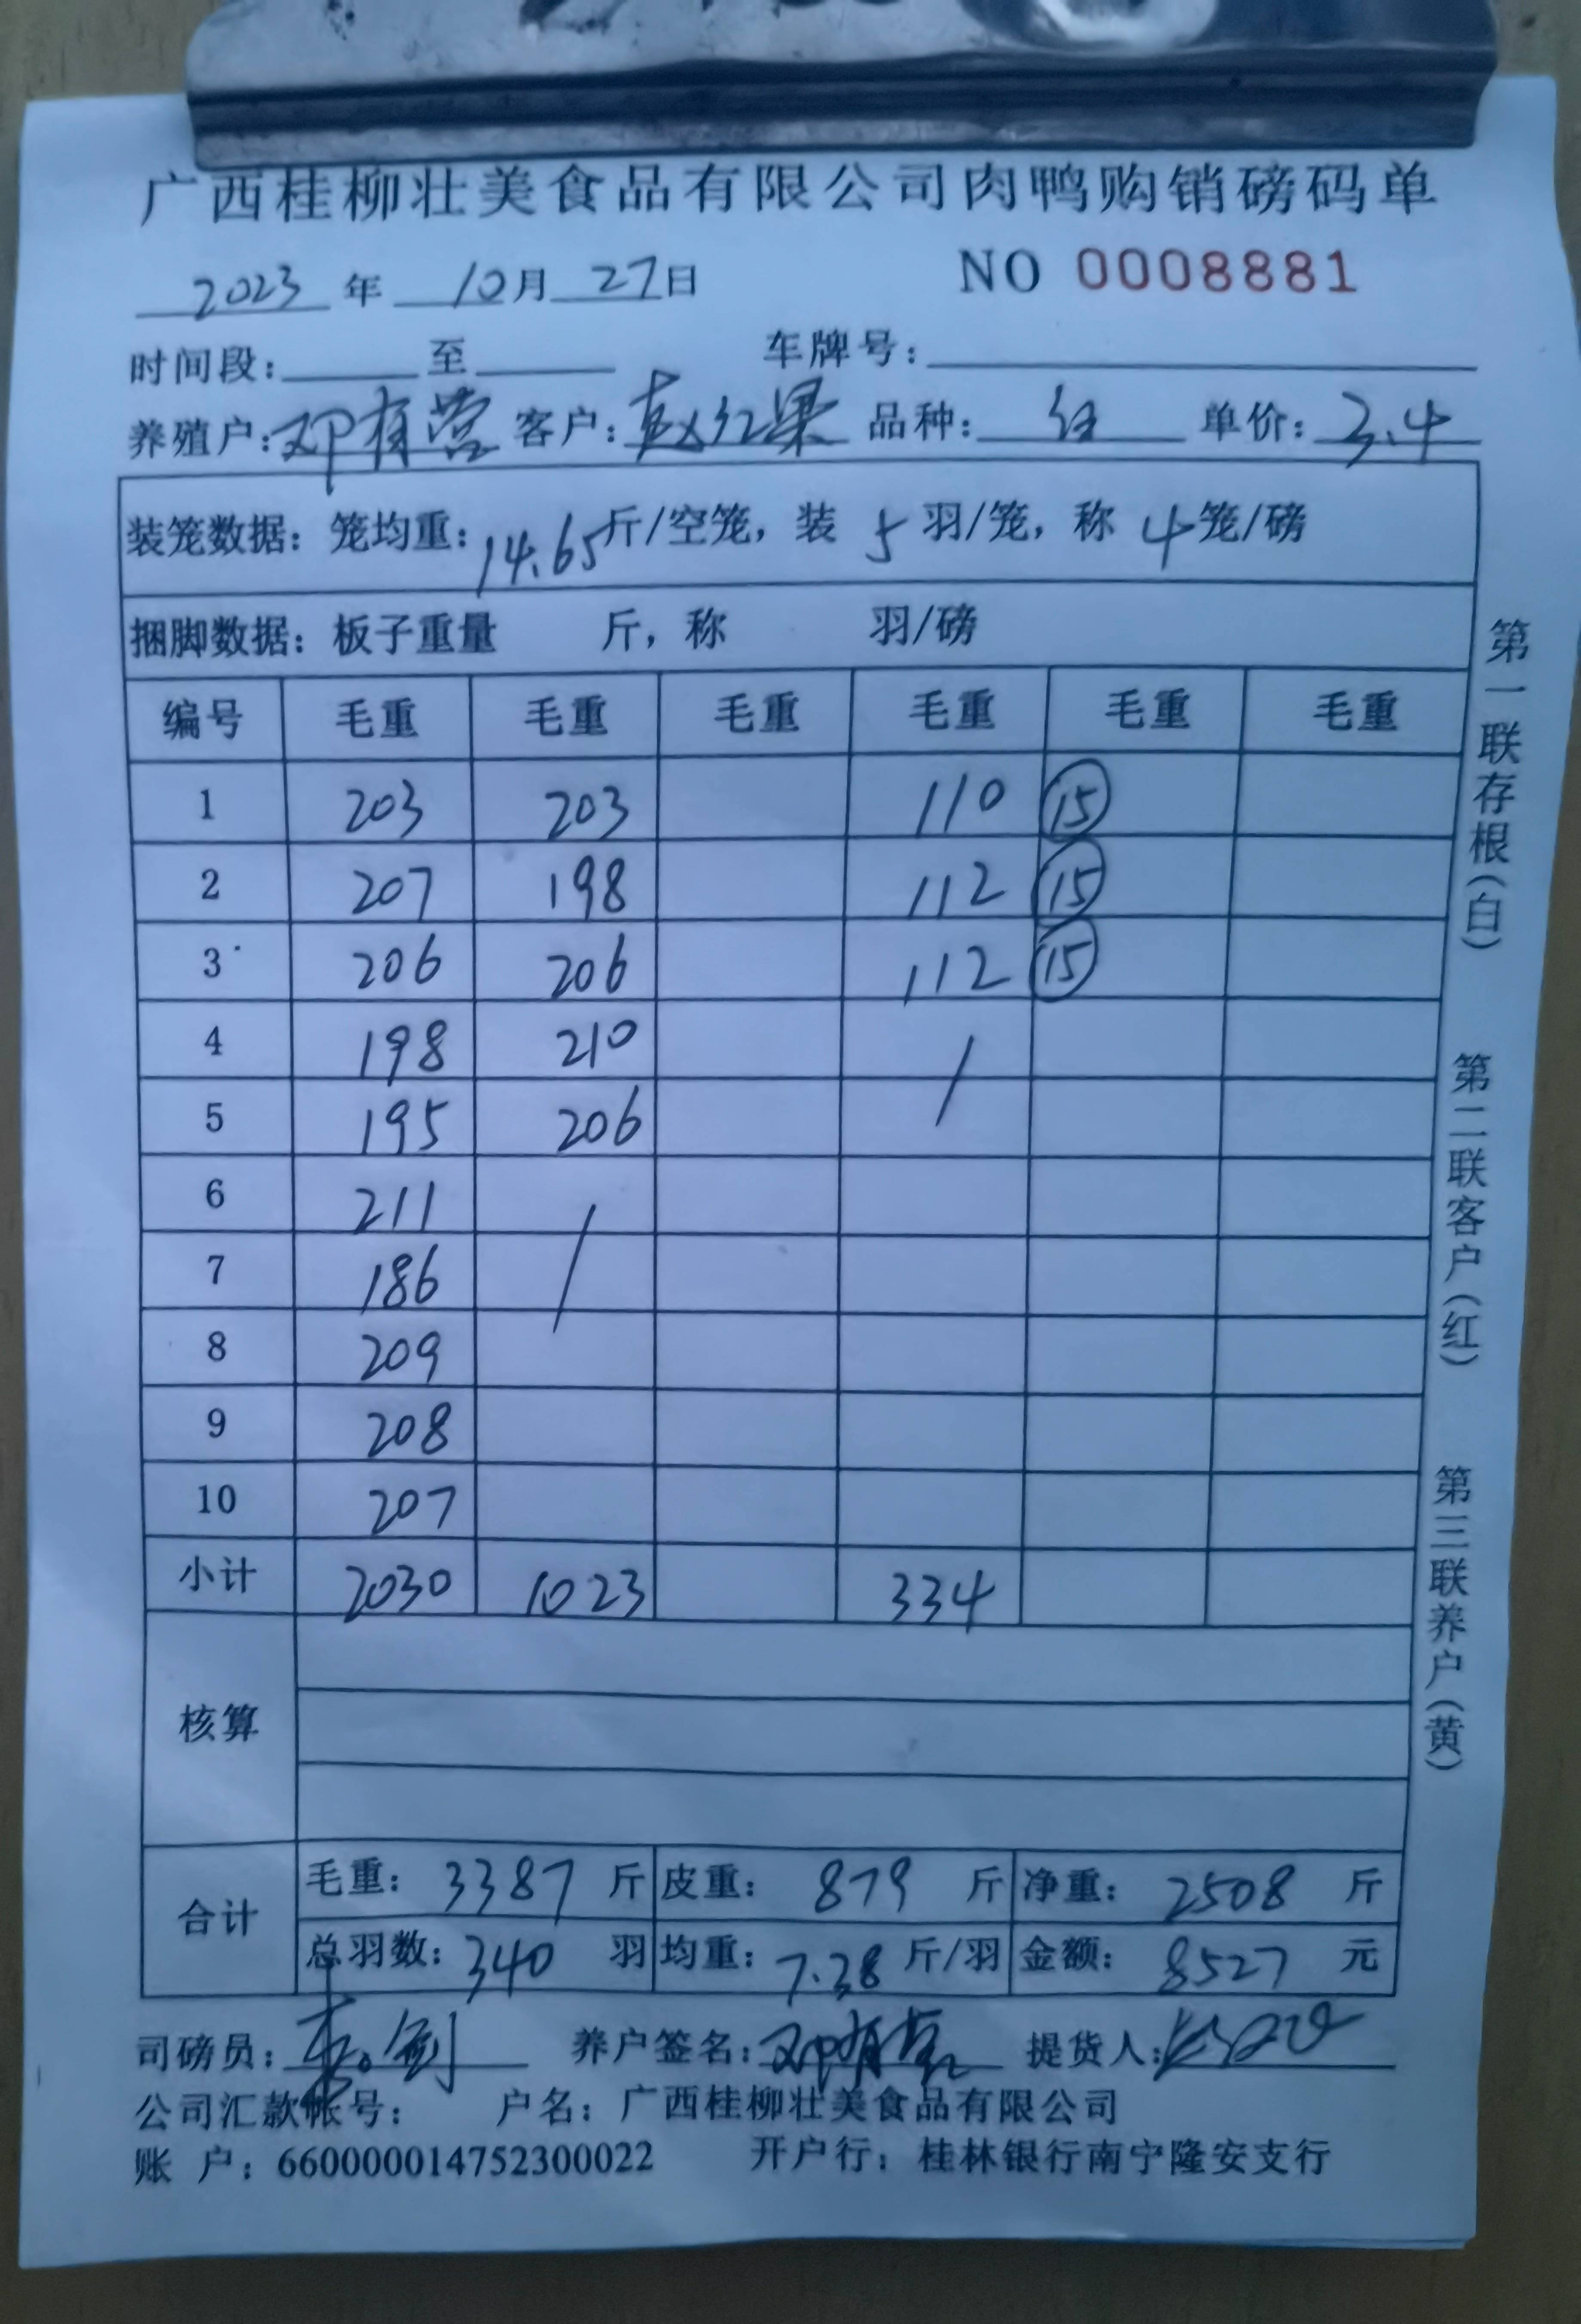 广西桂柳壮美食品有限公司肉鸭购销磅码单
2023 年 10月 27日 NO 0008881
时间段: 至 车牌号:
养殖户:邓有营 客户:赵红果 品种: 红 单价: 3.4
装笼数据: 笼均重: 14.65斤/空笼, 装 5 羽/笼, 称 4 笼/磅
捆脚数据: 板子重量 斤, 称 羽/磅
编号 毛重 毛重 毛重 毛重 毛重 毛重
1 203 203 110 15
2 207 198 112 15
3 206 206 112 15
4 198 210 /
5 195 206
6 211 /
7 186
8 209
9 208
10 207
小计 2030 1023 334
核算
合计
毛重: 3387 斤 皮重: 879 斤 净重: 2508 斤
总羽数: 340 羽 均重: 7.38 斤/羽 金额: 8527 元
司磅员: 养户签名: 邓有营 提货人:
公司汇款帐号: 户名: 广西桂柳壮美食品有限公司
账 户: 660000014752300022 开户行: 桂林银行南宁隆安支行
第一联存根(白)
第二联客户(红)
第三联养户(黄)